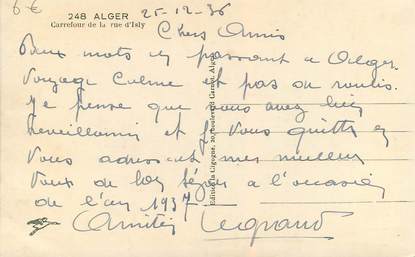 6 €
248 ALGER
Carrefour de la rue d'Isly
25-12-36
Chers Amis
Deux mots en passant a Alger.
Voyage Calme et pas de roulis.
Je pense que vous avez bien
Reveillonné et je Vous quitte en
Vous adressant mes meilleurs
Vœux de bon séjour a l'occasion
de l'an 1937
Amitiés Legrand
Edition La Cigogne, 20, Boulevard Carnot, Alger